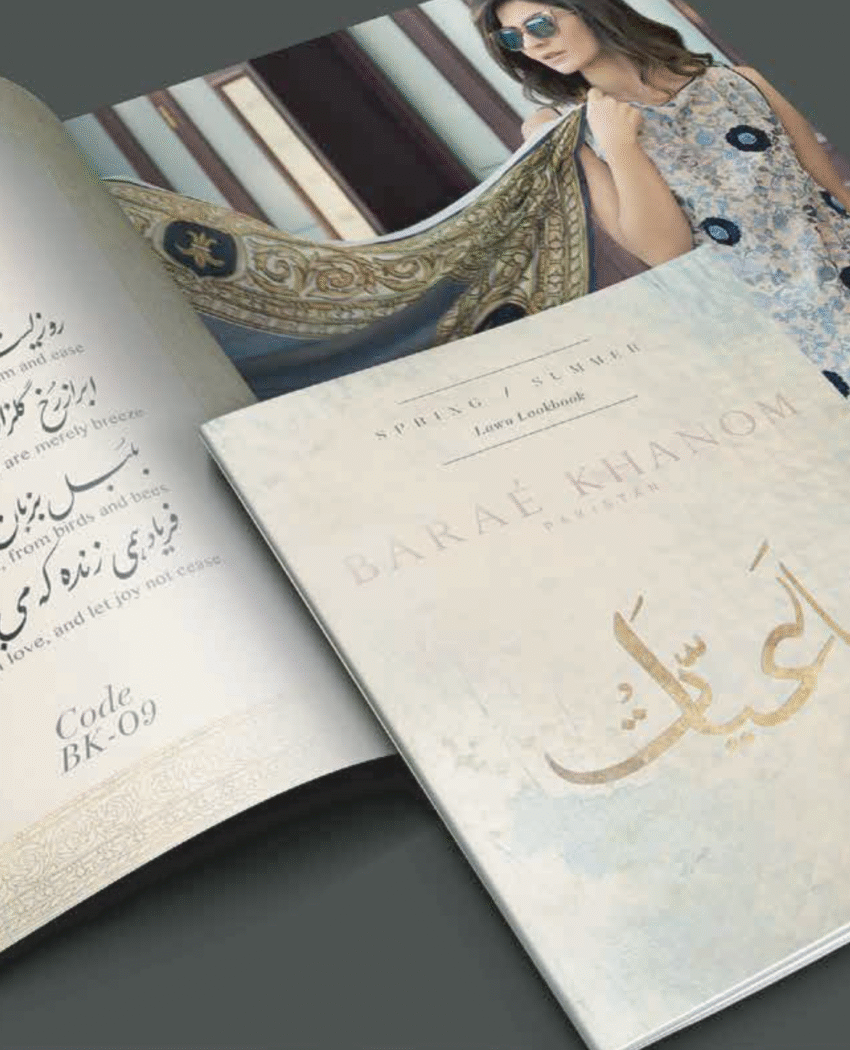 روزیست
m and ease
ابر از رخ گلزا
are merely breeze
بلبل بزبان
, from birds and bees,
فریاد همی زنده که می
love, and let joy not cease.
Code
BK-09
SPRING / SUMMER
Lawn Lookbook
BARAÉ KHANOM
PAKISTAN
اعیّات